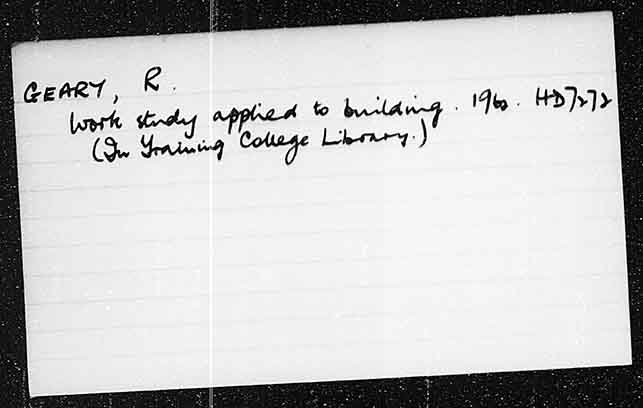 GEARY, R.
Work study applied to building. 1960. HD7272
(In Training College Library.)